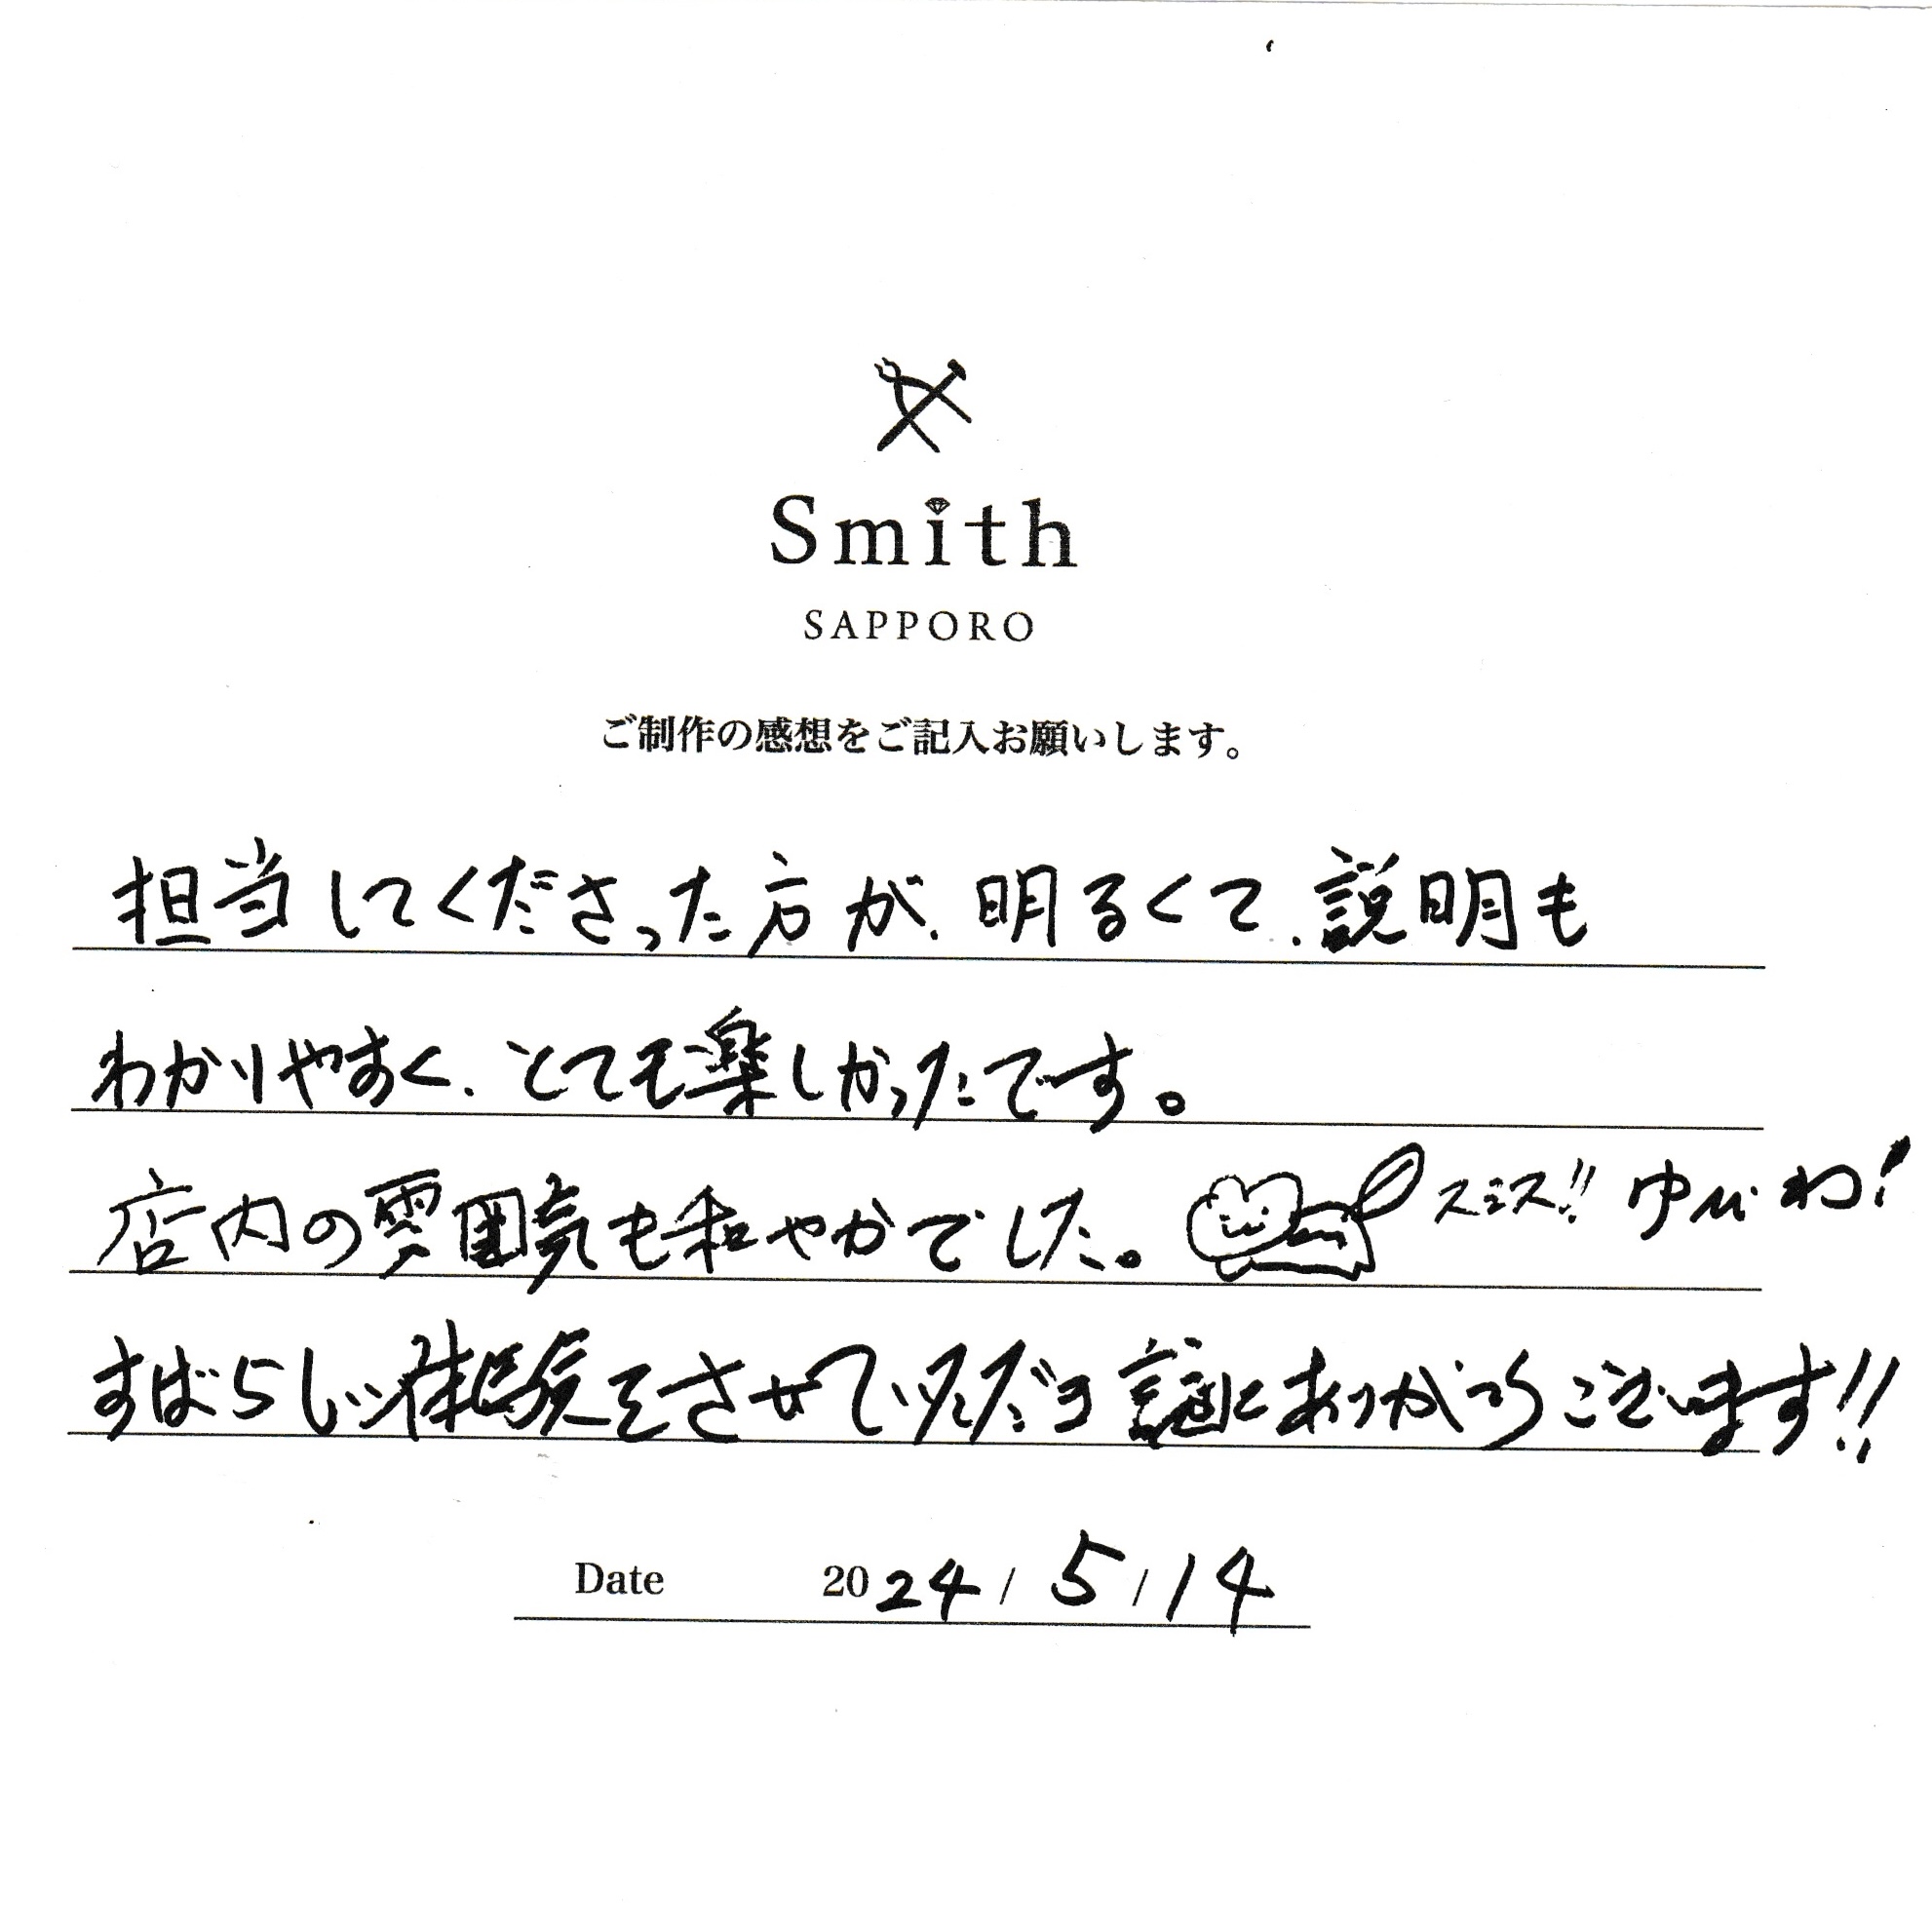 Smith
SAPPORO
ご制作の感想をご記入お願いします。
担当してくださった方が、明るくて、説明も
わかりやすく、とても楽しかったです。
店内の雰囲気も和やかでした。 スミス!! ゆびわ!
すばらしい体験をさせていただき誠にありがとうございます!!
Date 2024/5/14